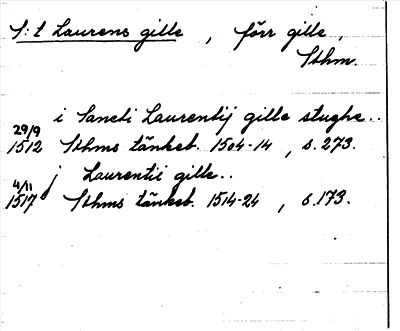 S:t Laurens gille, förr gille,
Sthm.
i Sancti Laurentij gille stughe..
29/9
1512 Sthms tänkeb. 1504-14, s. 273.
j Laurentii gille..
4/11
1517 Sthms tänkeb. 1514-24, s. 173.